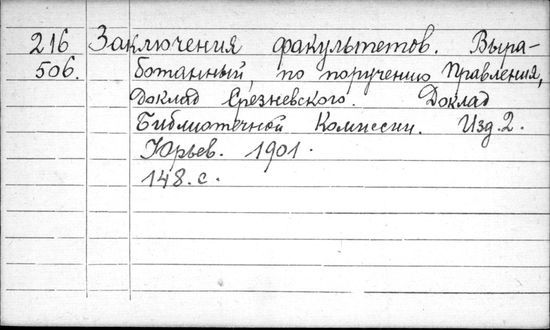 216 Заключения факультетов. Выра-
506. ботанный, по поручению Правления,
Доклад Срезневского. Доклад
Библиотечной Комиссии. Изд. 2.
Юрьев. 1901.
148. с.